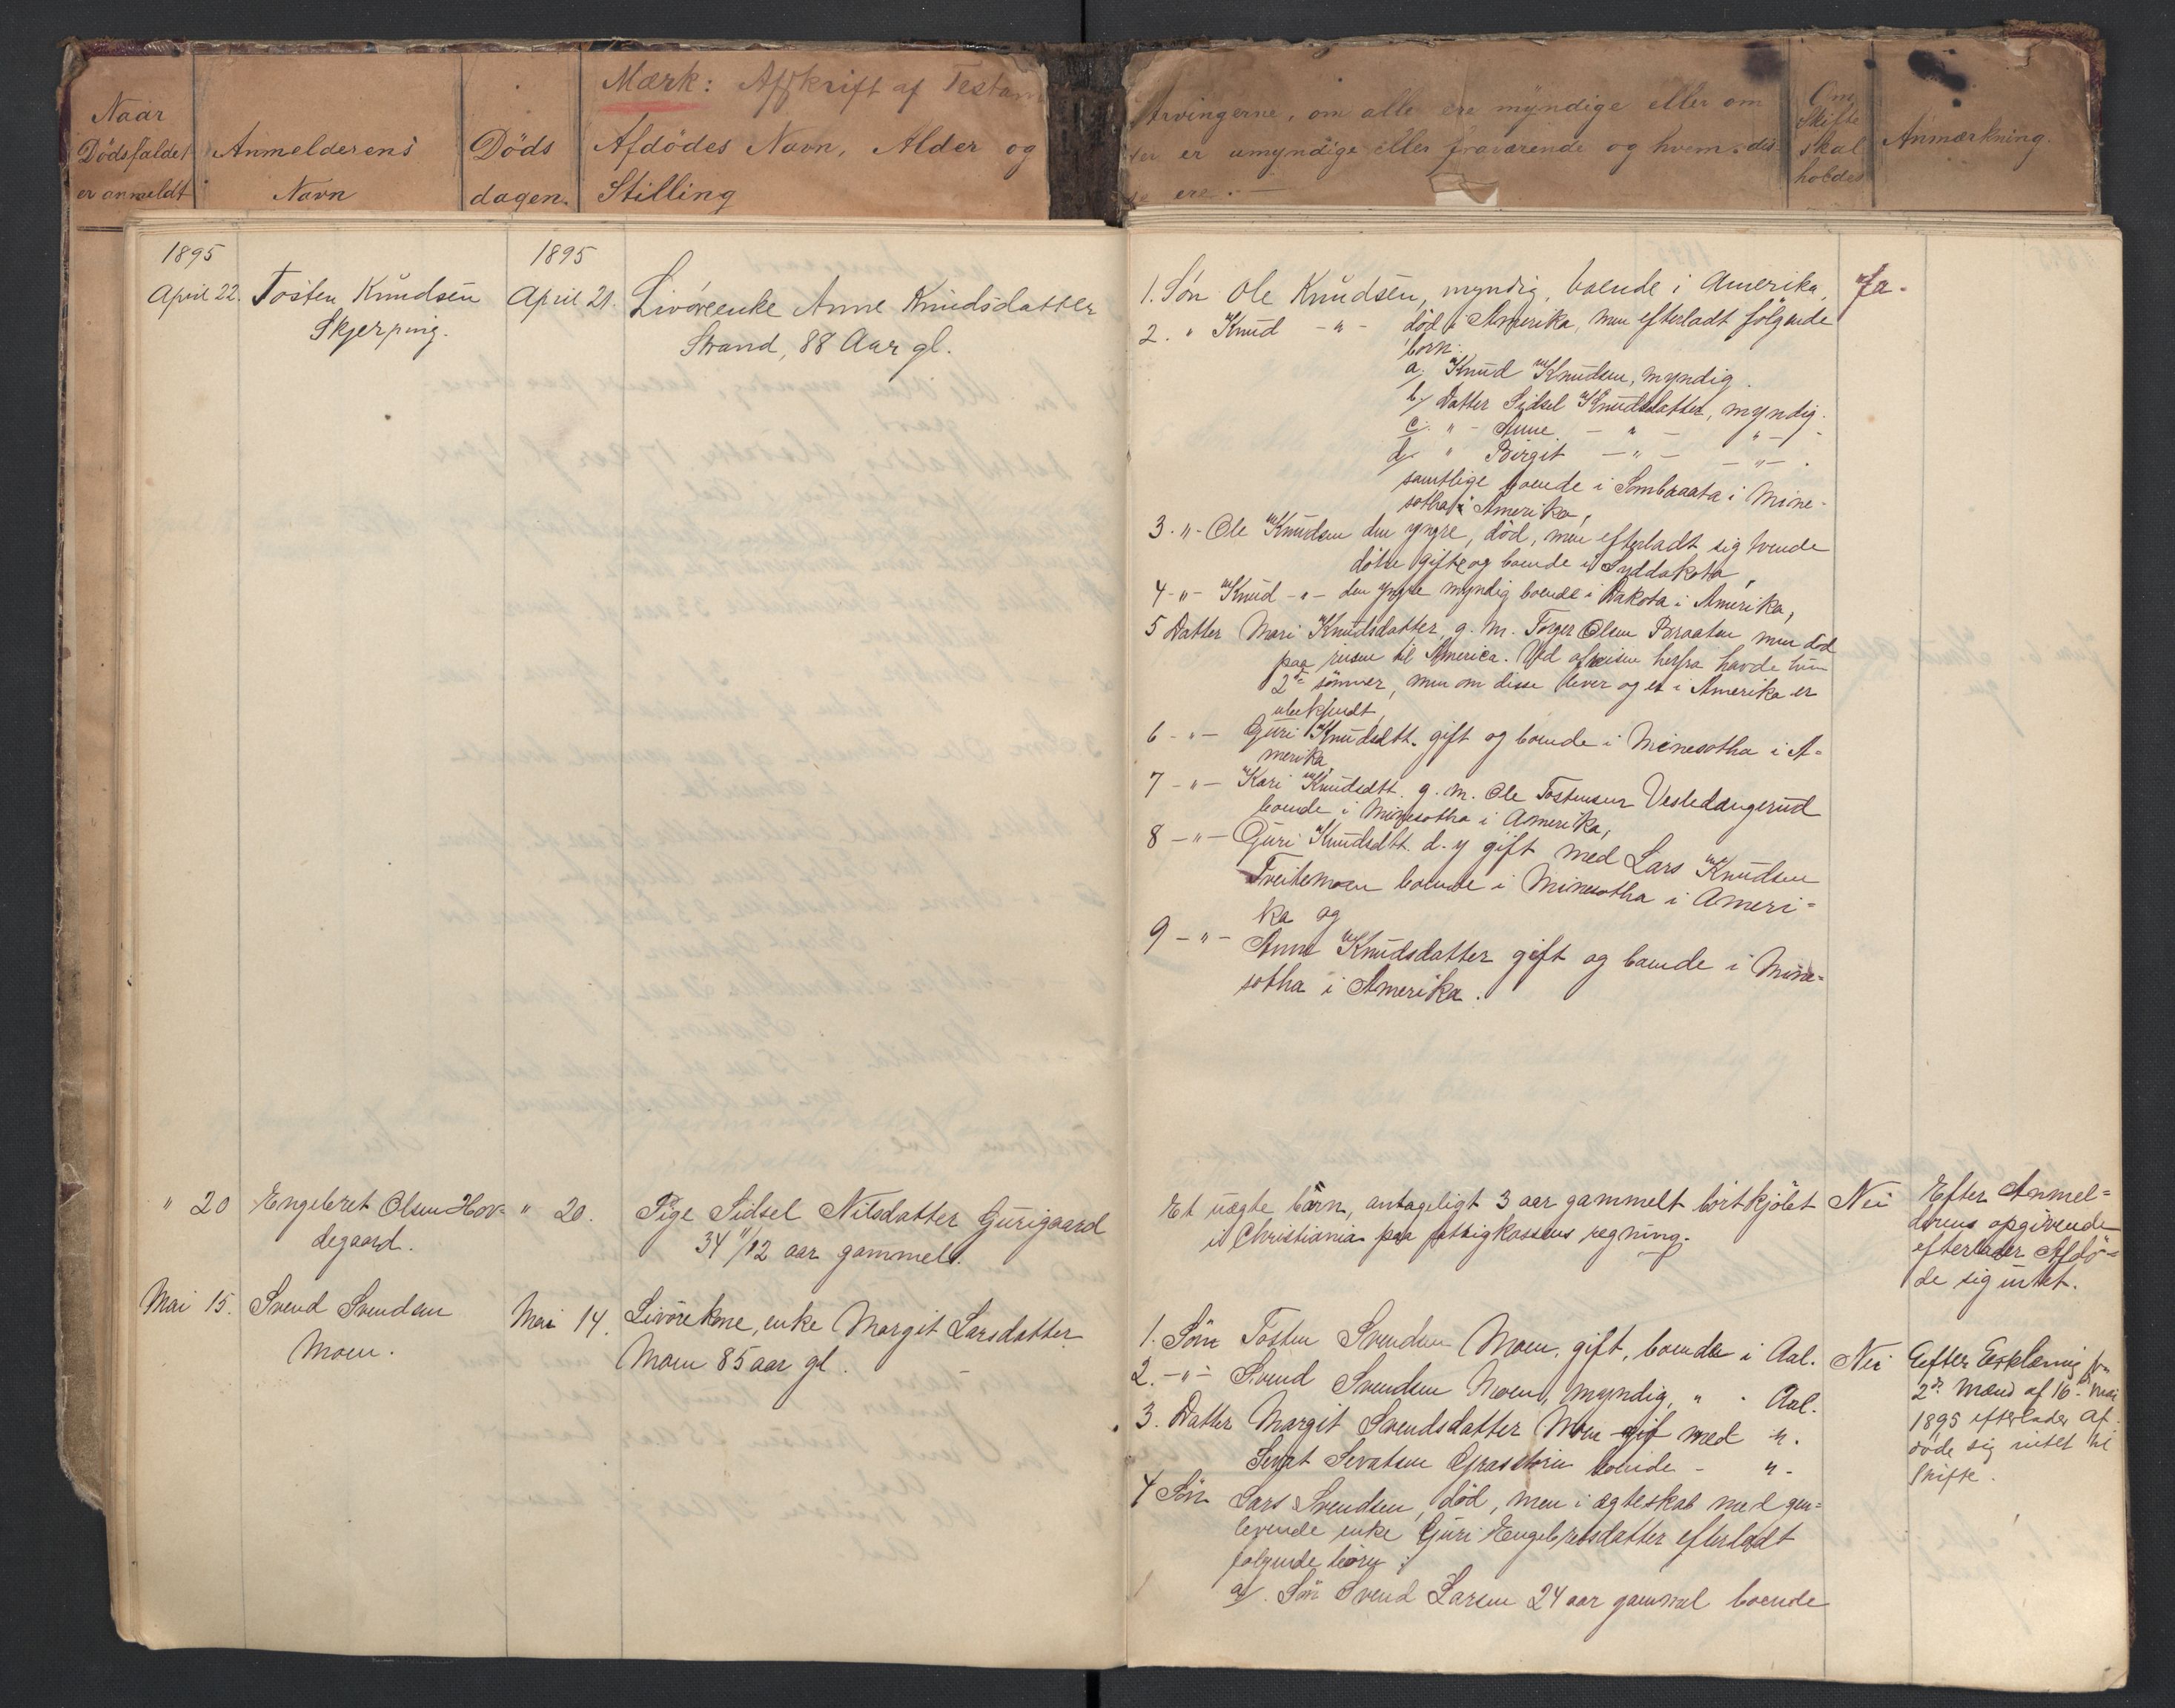 Naar
Dødsfaldet
er anmeldt
Anmelderens
Navn
Døds
dagen.
Mærk: Afskrift af Testam
Afdødes Navn, Alder og
Stilling
Arvingerne, om alle ere myndige eller om
er umyndige eller fraværende og hvem dis-
ere.
Om
Skifte
skal
holdes
Anmærkning.
1895
April 22.
Tosten Knudsen
Skjerping.
1895
April 21.
Livøreenke Anne Knudsdatter
Strand, 88 Aar gl.
1. Søn Ole Knudsen, myndig, boende i Amerika,
2. " Knud - " - død i Amerika, men efterladt følgende
børn:
a. Knud Knudsen, myndig.
b/ Datter Sidsel Knudsdatter, myndig.
c. " - Anne - " - " -
d. " Birgit - " - - " - .
samtlige boende i Sombraata i Mine-
sotha i Amerika,
3 - " - Ole Knudsen den yngre, død, men efterladt sig tvende
døtre gifte og boende i Syddakota,
4 - " - Knud - " - den yngre myndig boende i Dakota i Amerika,
5 Datter Mari Knudsdatter, g. m. Torger Olsen Braaten, men død
paa reisen til America. Ved afreisen herfra havde hun
2de sønner, men om disse lever og er i Amerika er
ubekjendt,
6 - " - Guri Knudsdtt. gift og boende i Minesotha i A-
merika,
7 - " - Kari Knudsdtt. g. m. Ole Tostensen Vesledangerud
boende i Minesotha i Amerika,
8 - " - Guri Knudsdtt. d. y gift med Lars Knudsen
Treitemoen boende i Minesotha i Ameri-
ka og
9 - " - Anne Knudsdatter gift og boende i Mine-
sotha i Amerika.
Ja.
" 20
Engebret Olsen Hov-
degaard.
" 20.
Pige Sidsel Nilsdatter Gurigaard
34 11/12 aar gammel.
Et uægte barn, antageligt 3 aar gammelt bortkjøbt
i Christiania paa fattigkassens regning.
Nei
Efter Anmel-
derens opgivende
efterlader Afdø-
de sig intet.
Mai 15.
Svend Svendsen
Moen.
Mai 14.
Livørekone, enke Margit Larsdatter
Moen 85 aar gl.
1. Søn Tosten Svendsen Moen, gift, boende i Aal.
2. - " - Svend Svendsen Moen, myndig, " - Aal.
3. Datter Margit Svendsdatter Moen gif med ".
Sevat Sevatsen Grasstorie boende - " -
4 Søn Lars Svendsen, død, men i ægteskab med gen-
levende enke Guri Engebretsdatter efterladt
følgende børn:
a/. Søn Svend Larsen 24 aar gammel boende
Nei
Efter Erklæring fra
2de Mænd af 16. Mai
1895 efterlader Af-
døde sig intet til
skifte.